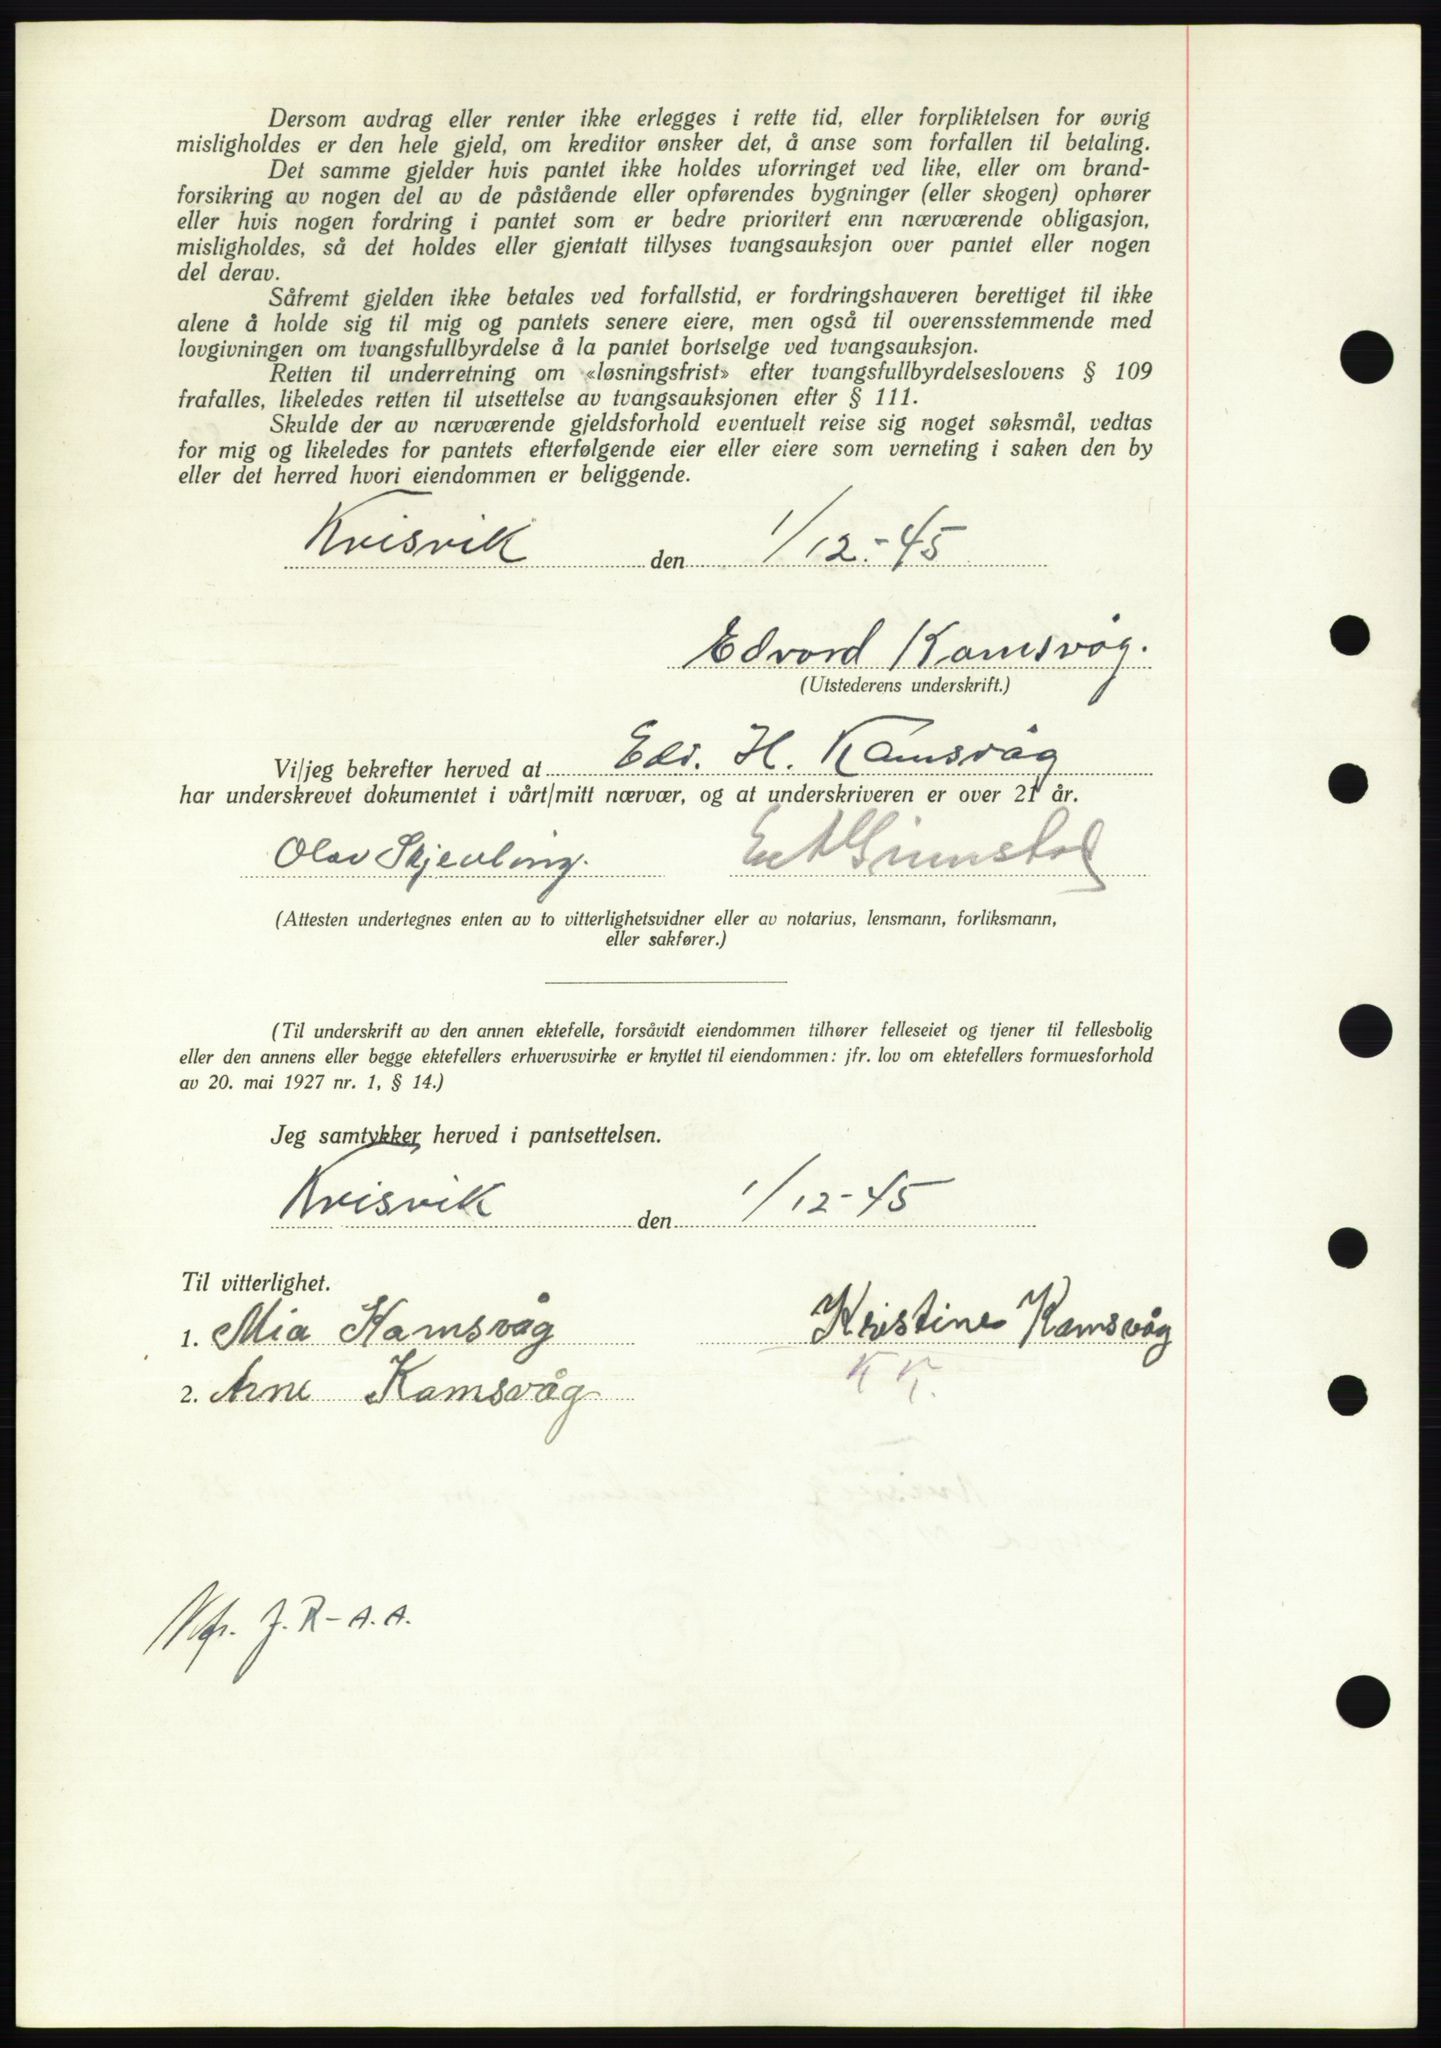 Dersom avdrag eller renter ikke erlegges i rette tid, eller forpliktelsen for øvrig
misligholdes er den hele gjeld, om kreditor ønsker det, å anse som forfallen til betaling.
Det samme gjelder hvis pantet ikke holdes uforringet ved like, eller om brand-
forsikring av nogen del av de påstående eller opførendes bygninger (eller skogen) ophører
eller hvis nogen fordring i pantet som er bedre prioritert enn nærværende obligasjon,
misligholdes, så det holdes eller gjentatt tillyses tvangsauksjon over pantet eller nogen
del derav.
Såfremt gjelden ikke betales ved forfallstid, er fordringshaveren berettiget til ikke
alene å holde sig til mig og pantets senere eiere, men også til overensstemmende med
lovgivningen om tvangsfullbyrdelse å la pantet bortselge ved tvangsauksjon.
Retten til underretning om «løsningsfrist» efter tvangsfullbyrdelseslovens § 109
frafalles, likeledes retten til utsettelse av tvangsauksjonen efter § 111.
Skulde der av nærværende gjeldsforhold eventuelt reise sig noget søksmål, vedtas
for mig og likeledes for pantets efterfølgende eier eller eiere som verneting i saken den by
eller det herred hvori eiendommen er beliggende.
Kvisvik den 1/12.-45
Edvard Kamsvåg.
(Utstederens underskrift.)
Vi/jeg bekrefter herved at Edv. H. Kamsvåg
har underskrevet dokumentet i vårt/mitt nærvær, og at underskriveren er over 21 år.
Olav Skjevling. Grimstad
(Attesten undertegnes enten av to vitterlighetsvidner eller av notarius, lensmann, forliksmann,
eller sakfører.)
(Til underskrift av den annen ektefelle, forsåvidt eiendommen tilhører felleseiet og tjener til fellesbolig
eller den annens eller begge ektefellers erhvervsvirke er knyttet til eiendommen: jfr. lov om ektefellers formuesforhold
av 20. mai 1927 nr. 1, § 14.)
Jeg samtykker herved i pantsettelsen.
Kvisvik den 1/12-45
Til vitterlighet.
1. Mia Kamsvåg Kristine Kamsvåg
2. Arne Kamsvåg K K.
J. R-A.A.